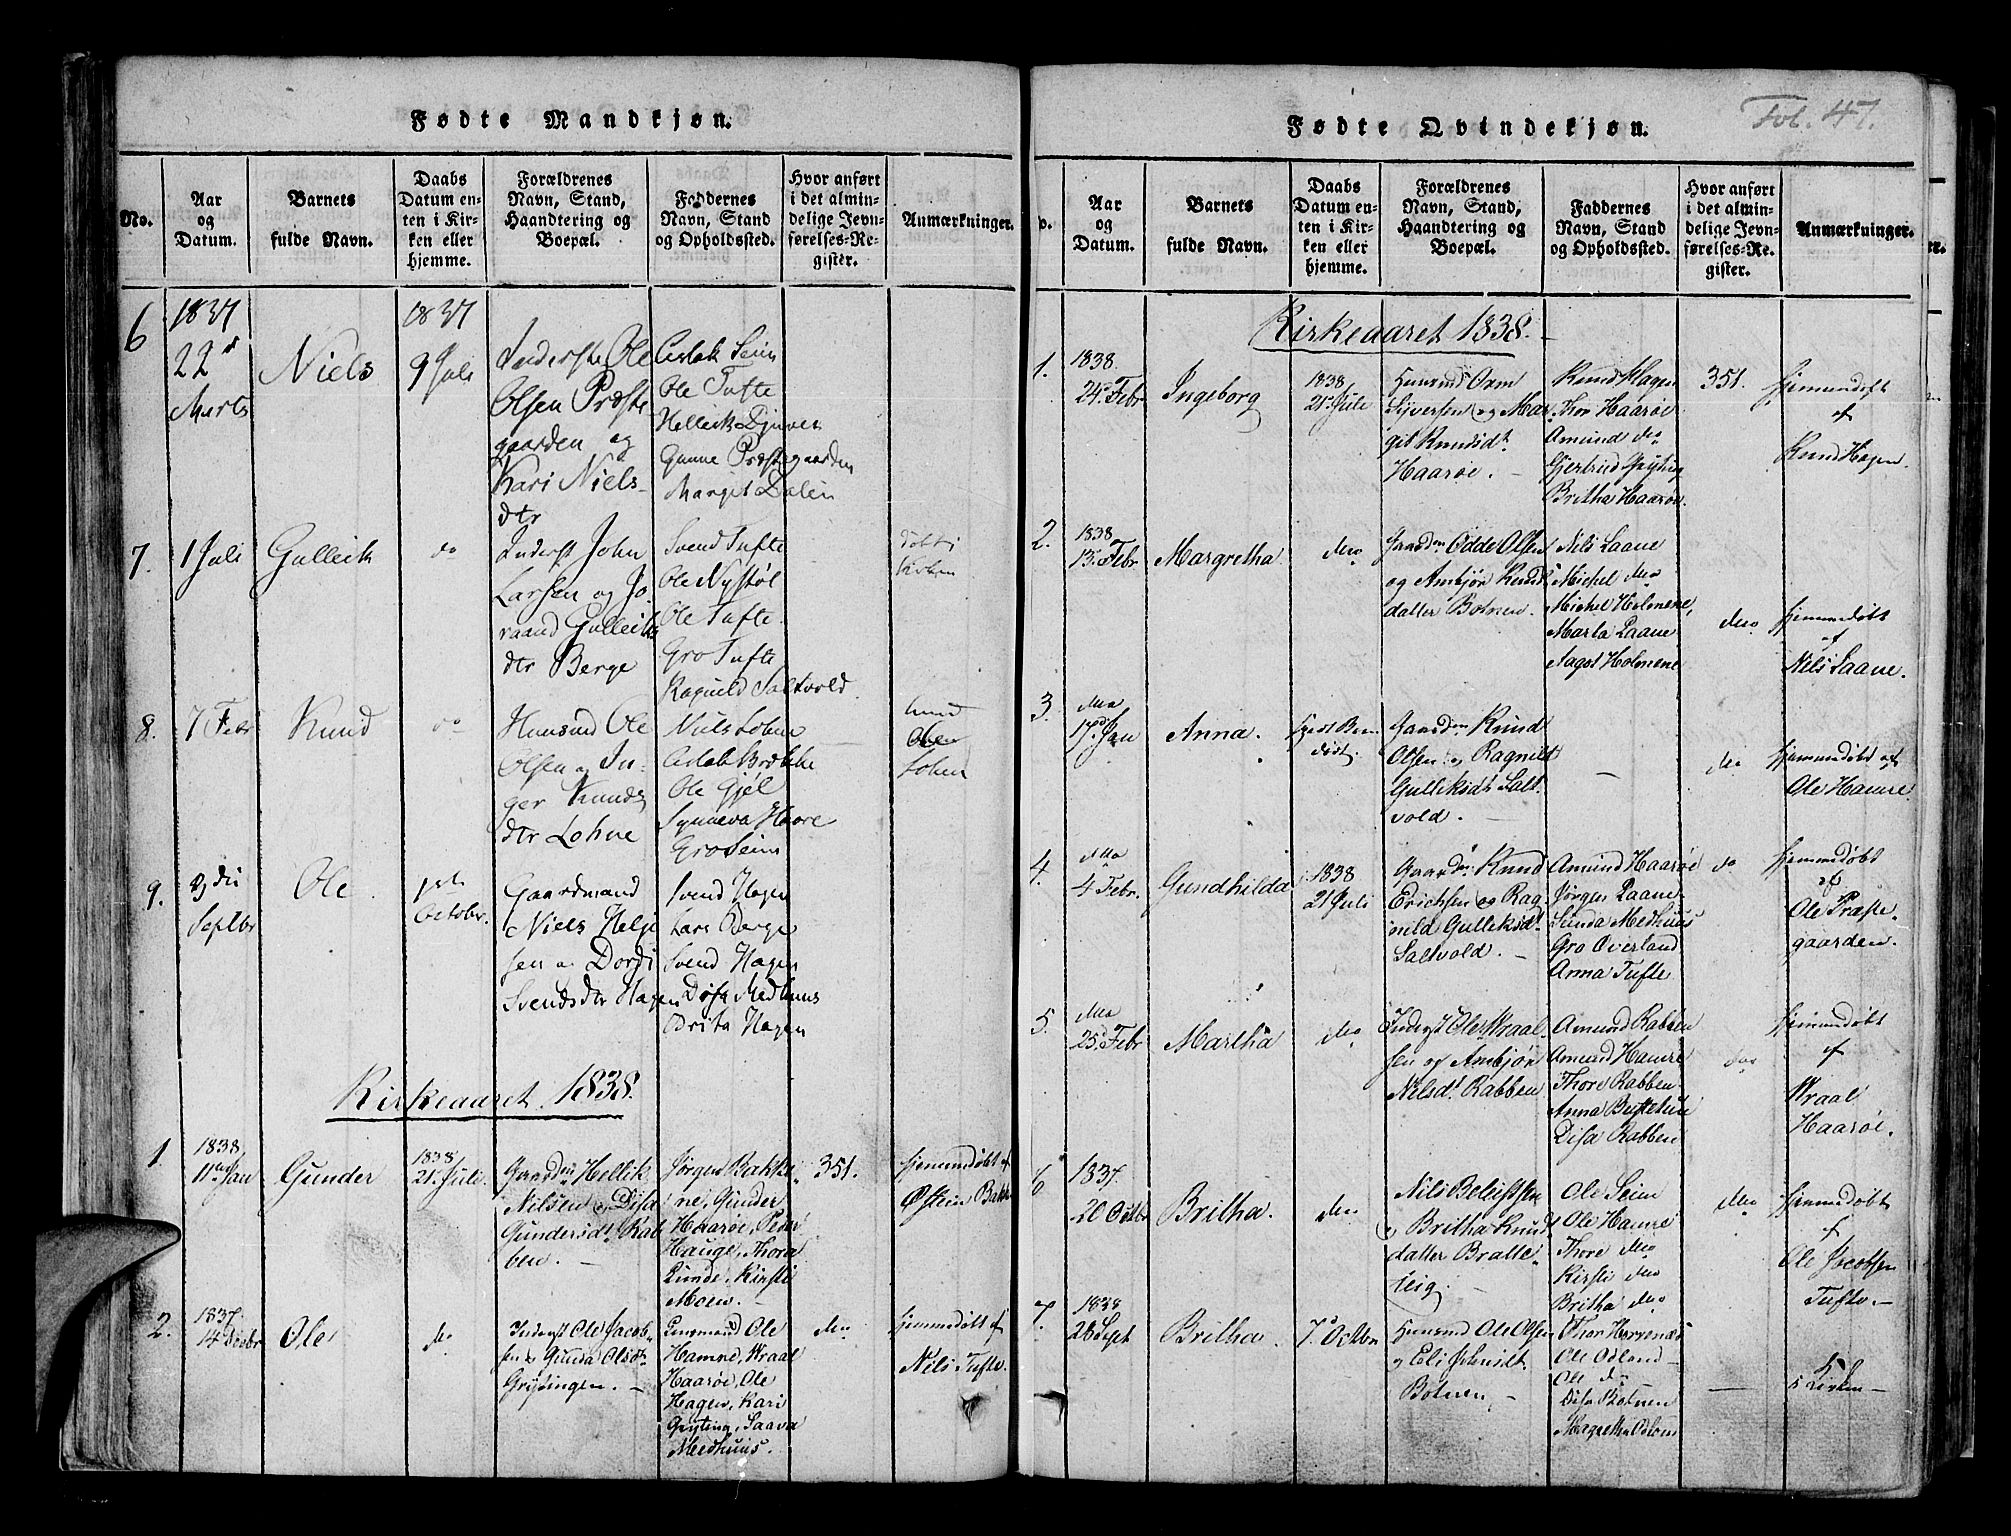 Fødte Mandkjøn.
No.
Aar
og
Datum.
Barnets
fulde Navn.
Daabs
Datum en-
ten i Kir-
ken eller
hjemme.
Forældrenes
Navn, Stand,
Haandtering og
Boepæl.
Faddernes
Navn, Stand
og Opholdssted.
Hvor anført
i det almin-
delige Jevn-
førelses-Re-
gister.
Anmærkninger.
6
1837
22d
Marts
Niels
1837
9 Juli
Inderste Ole
Olsen Præste
gaarden og
Kari Niels-
dtr
Aslak Seim
Ole Tufte
Helleik Djuven
Gunne Præstegaarden
Marget Dalen
7.
1 Juli
Gulleik
do
Inderst John
Larsen og Jo-
raand Gulleiks
dtr Berge
Svend Tufte
Ole Nystøl
Ole Tufte
Gro Tufte
Ragnild Saltvold
døbt i
Kirken
8.
7 Febr
Knud
do
Huusmd Ole
Olsen og In-
ger Knuds
dtr Lohne
Niels Lohne
Aslak Brække
Ole Gjøl
Synneva Haare
Gro Seim
Lohen
9.
Septbr
Ole
1ste
October.
Gaardmand
Niels Helje
sen og Dordi
Svendsdtr Hagen
Svend Hagen
Lars Berge
Svend Hagen
Disa Medhuus
Brita Hagen
Kirkeaaret 1838.
1.
1838
11te Jan
Gunder
1838
21. Juli.
Gaardmn Hellik
Nilsen og Disa
Gundersdt Rab
ben. —
Jørgen Bakke
ne, Gunder
Haarøe, Peder
Hauge, Thora
Lunde, Kirsti
Moen. —
351.
Hjemmedøbt af
Østein Bakke
2.
1837.
14 Decbr
Ole
do
Inderst Ole Jacob-
sen og Gunda Olsdt
Grytingen. —
Ungsmand Ole
Hamre, Wraal
Haarøe, Ole
Hagen, Kari
Gryting, Saava
Medhuus.
do
hjemmedøbt af
Nils Tufte.
Fødte Qvindekjøn.
Fol. 47.
o.
Aar
og
Datum.
Barnets
fulde Navn.
Daabs
Datum en-
ten i Kir-
ken eller
hjemme.
Forældrenes
Navn, Stand,
Haandtering og
Boepæl.
Faddernes
Navn, Stand
og Opholdssted.
Hvor anført
i det almin-
delige Jevn-
førelses-Re-
gister.
Anmærkninger.
Kirkeaaret 1838. —
1.
1838.
24. Febr
Ingeborg
1838
21. Juli
Huusmd Orm
Sjversen og Mar-
git Knudsdt.
Haarøe. —
Knud Hagen
Thor Haarøe
Amund do
Gjertrud Gryting
Britha Haarøe.
351.
Hjemmedøbt
af
Knud Hagen.
2.
1838
13. Febr
Margretha
do
Gaardmn Odde Olsen
og Ambjør Knuds
datter Botnen.
Nils Laane
Michel do
Michel Holmene,
Marta Laane
Aagot Holmene
do
hjemmedøbt
af
Nils Laane.
3.
do
17. Jan
Anna.
Gaardmn Knud
Olsen og Ragnild
Gulleksdt Salt-
vold. —
—
do
hjemmedøbt af
Ole Hamre.
4.
do
4 Febr.
Gundhilda
1838
21 Juli
Gaardmn Knud
Erichsen og Rag
nild Gulleksdt
Saltvold. —
Amund Haarøe
Jørgen Laane
Gunda Medhuus
Gro Overland
Anna Tufte
do
hjemmedøbt
af
Ole Præste-
gaarden. —
5.
do
25. Febr
Martha
do
Inderst Ole Wraal
sen og Ambjør
Nilsdt. Rabben
Amund Rabben
Amund Hamre
Thore Rabben
Anna Buttetun
Disa Rabben
do
hjemmedøbt
af
Wraal
Haarøe.
6
1837.
20 Octbr
Britha.
do
Nils Beleifsen
og Britha Knuds
datter Bratte-
teig.
Ole Seim
Ole Hamre
Thore do
Kirsti do
Britha do
do
hjemmedøbt
af
Ole Jacobsen
Tufte. —
7.
1838
26 Sept
Britha.
7. Octbr
Huusmd Ole Olsen
og Eli Johnsdt.
Botnen —
Thor Horvenæs
Ole Odland
Ole do
Disa Botnen
Magretha Odland
—
i Kirken —